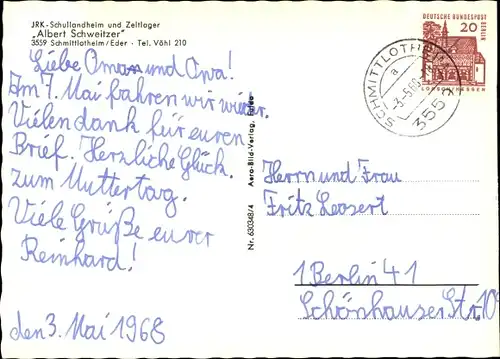 JRK-Schullandheim und Zeltlager
„Albert Schweitzer"
3559 Schmittlotheim/Eder - Tel. Vöhl 210
Liebe Oma und Opa!
Am 7. Mai fahren wir wieder.
Vielen dank für euren
Brief. Herzliche Glück.
zum Muttertag.
Viele Grüße eurer
Reinhard!
den 3. Mai 1968
Nr. 630348/4 Aero-Bild-Verlag,
DEUTSCHE BUNDESPOST
BERLIN
20
LORSCH/HESSEN
SCHMITTLOTHEIM
a
-3-5.68
355
Herrn und Frau
Fritz
1 Berlin 41
Schönhauser Str. 10